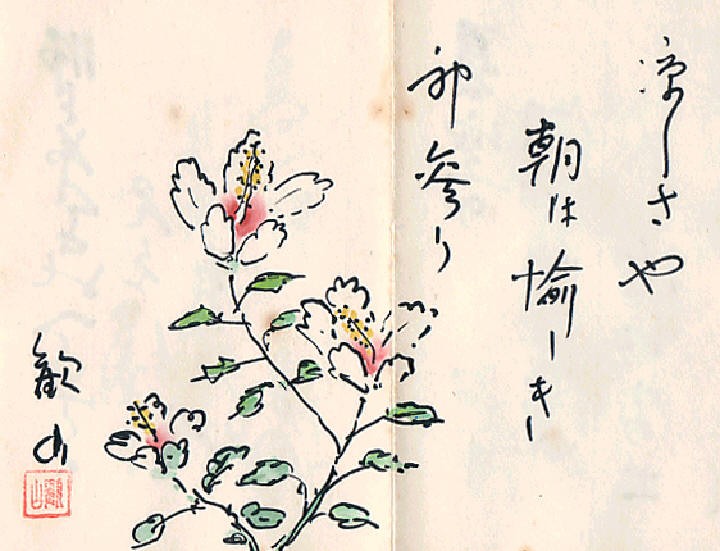 涼しさや
朝は愉しき
神参り
歓山